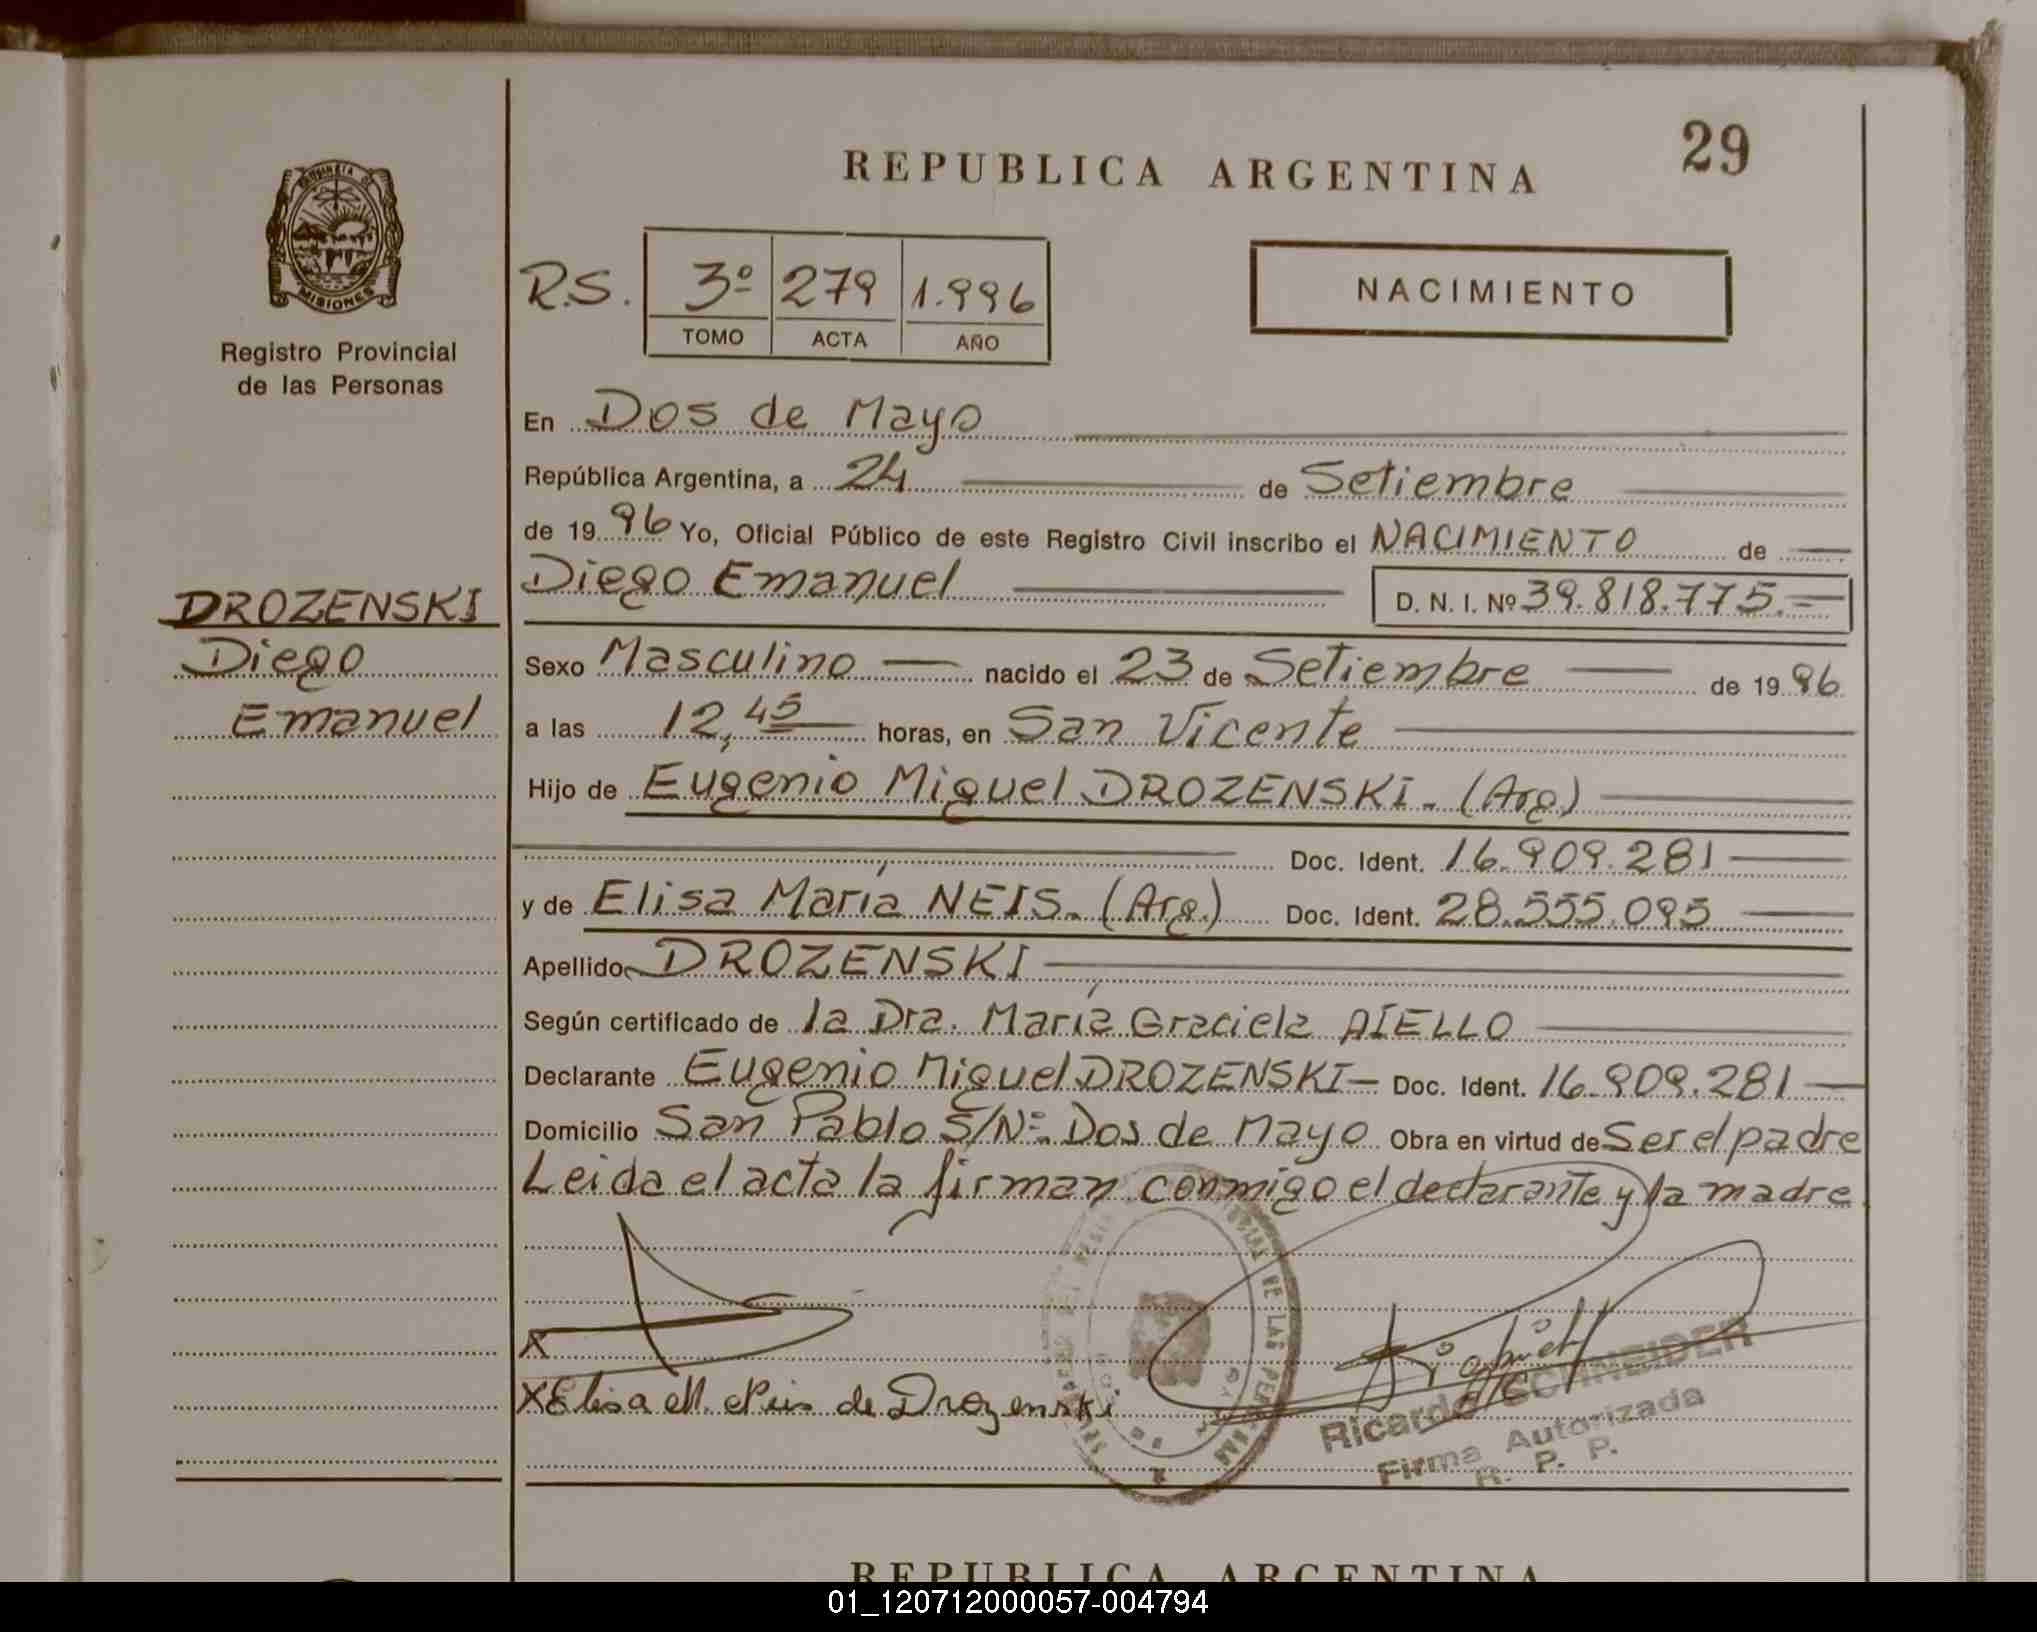 29
REPUBLICA ARGENTINA
PROVINCIA DE
MISIONES
Registro Provincial
de las Personas
R.S. 3º 279 1.996
TOMO ACTA AÑO
NACIMIENTO
En Dos de Mayo
República Argentina, a 24 de Setiembre
de 1996 Yo, Oficial Público de este Registro Civil inscribo el NACIMIENTO de
Diego Emanuel D. N. I. Nº 39.818.775.-
DROZENSKI
Diego
Emanuel
Sexo Masculino nacido el 23 de Setiembre de 1996
a las 12,45 horas, en San Vicente
Hijo de Eugenio Miguel DROZENSKI. (Arg)
Doc. Ident. 16.909.281
y de Elisa María NEIS. (Arg.) Doc. Ident. 28.555.095
Apellido DROZENSKI
Según certificado de la Dra. María Graciela AIELLO
Declarante Eugenio Miguel DROZENSKI Doc. Ident. 16.909.281
Domicilio San Pablo S/Nº Dos de Mayo Obra en virtud de Ser el padre
Leida el acta la firman conmigo el declarante y la madre
X
X Elisa M. Neis de Drozenski
Ricardo SCHNEIDER
Firma Autorizada
R. P. P.
REPUBLICA ARGENTINA
01_120712000057-004794